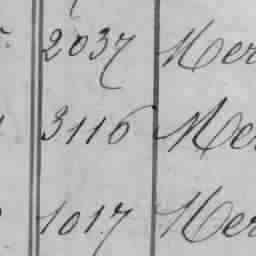 2037 Mer
3116 Mer
1017 Mer